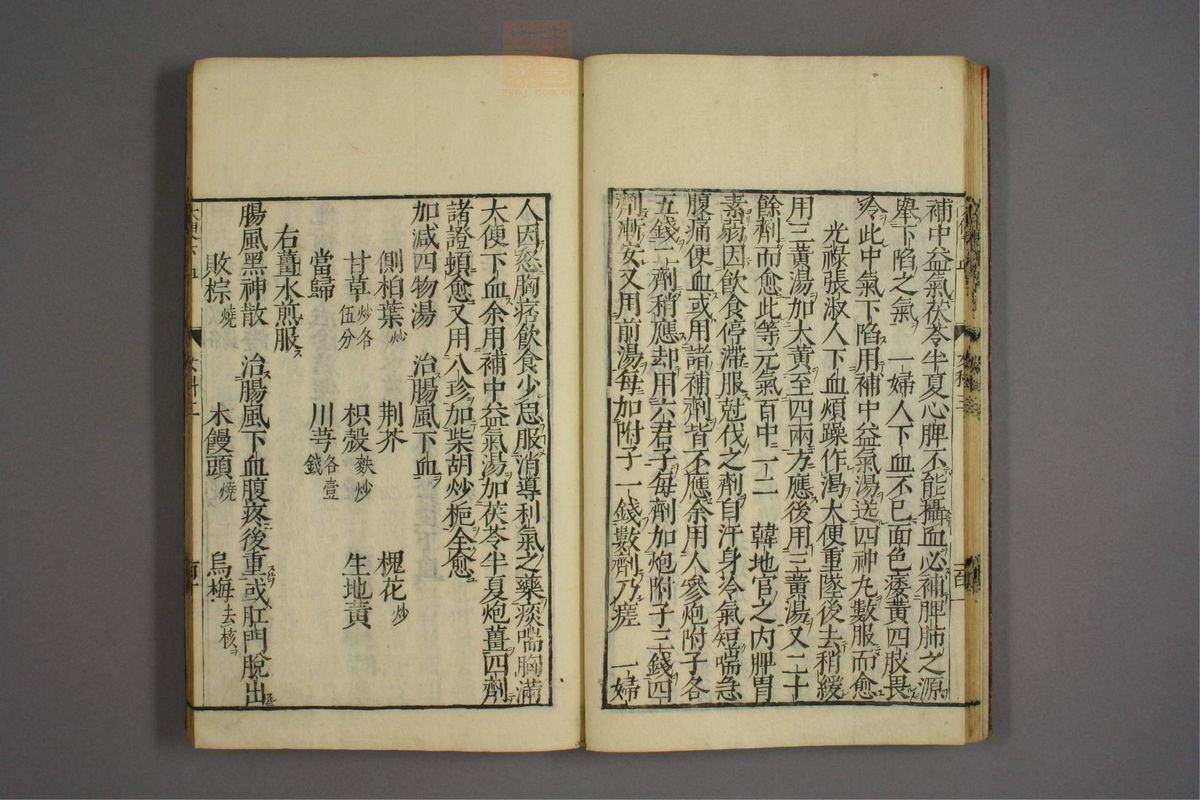 補中益氣茯苓半夏心脾不能攝血必補脾肺之源
舉下陷之氣　一婦人下血不已面色痿黃四肢畏
冷此中氣下陷用補中益氣湯送四神丸數服而愈
光祿張淑人下血煩躁作渴大便重墜後去稍緩
用三黃湯加大黃至四兩方應後用三黃湯又二十
餘劑而愈此等元氣百中一二　韓地官之内脾胃
素弱因飲食停滯服尅伐之劑自汗身冷氣短喘急
腹痛便血或用諸補劑皆不應余用人參炮附子各
五錢二劑稍應却用六君子每劑加炮附子三錢四
劑漸安又用前湯每加附子一錢數劑乃瘥　一婦
人因怒胸痞飲食少思服消導利氣之藥痰喘胸滿
大便下血余用補中益氣湯加茯苓半夏炮薑四劑
諸證頓愈又用八珍加柴胡炒梔全愈
加减四物湯　治腸風下血
側柏葉炒　荆芥　槐花炒
甘草炒各伍分　枳殼麩炒　生地黃
當歸　川芎各壹錢
右薑水煎服
腸風黑神散　治腸風下血腹疼後重或肛門脫出
敗棕燒　木饅頭燒　烏梅去核